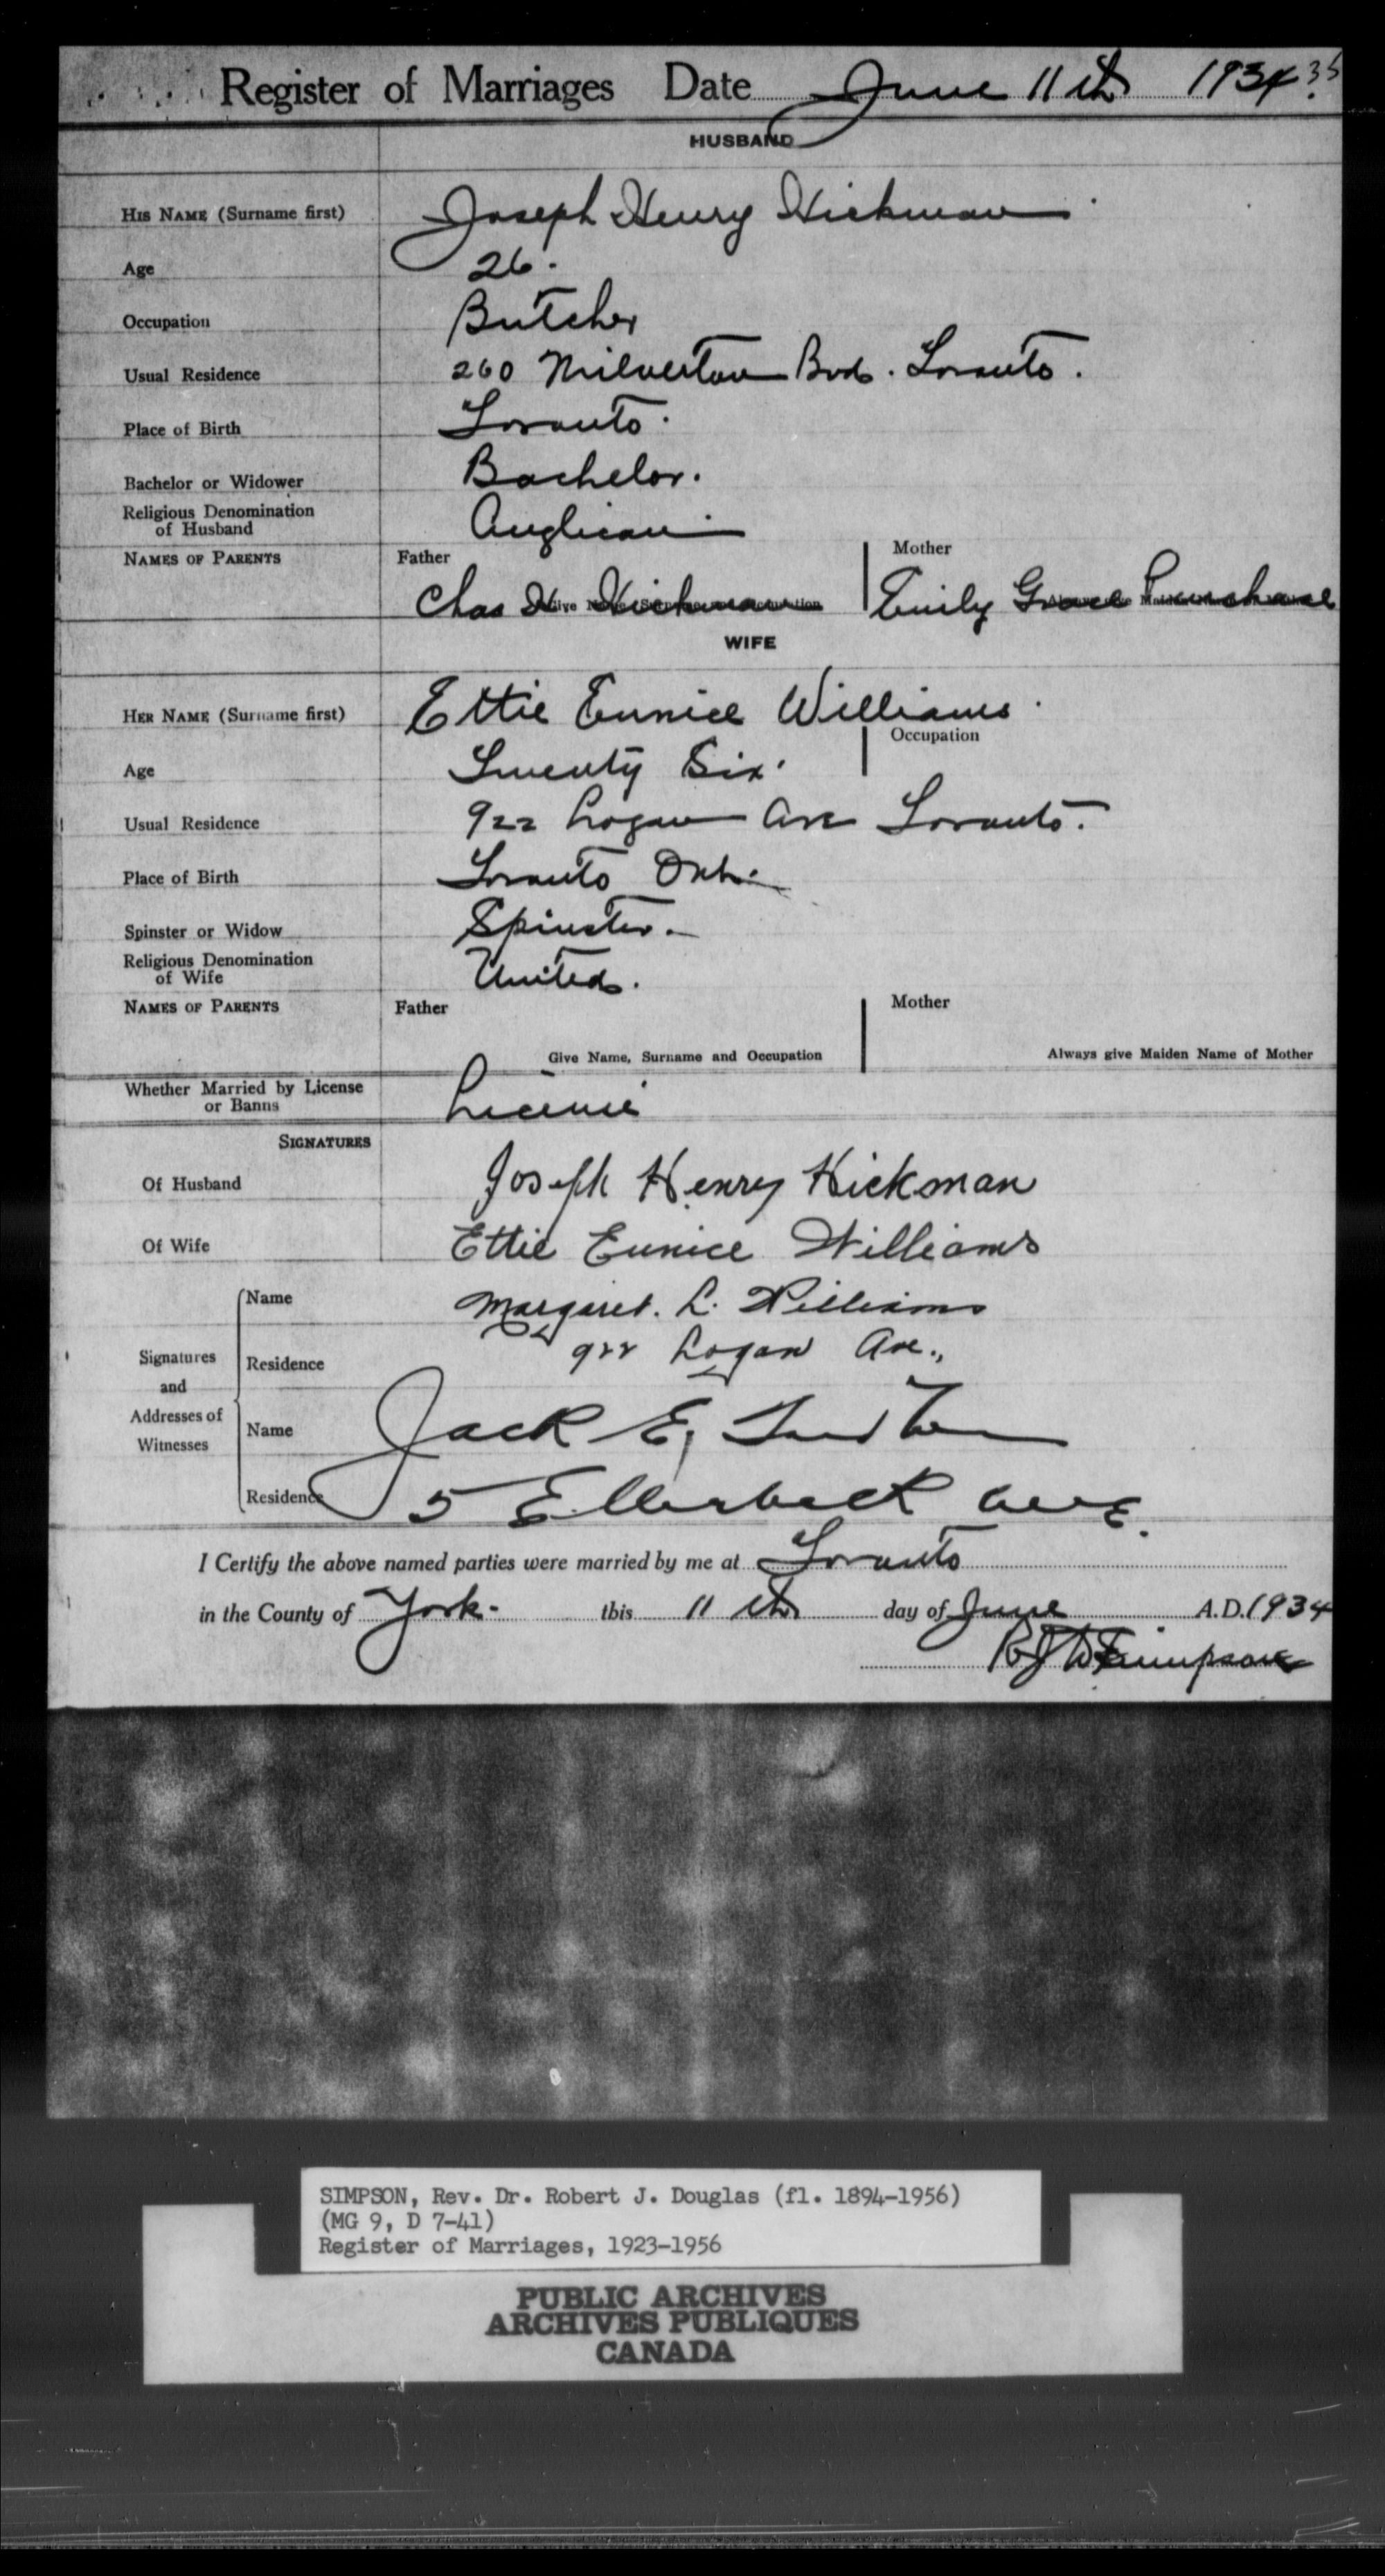 Register of Marriages Date June 11th 1934 35
HUSBAND
HIS NAME (Surname first) Joseph Henry Hickman
Age 26.
Occupation Butcher
Usual Residence 260 Milverton Bvd. Toronto.
Place of Birth Toronto.
Bachelor or Widower Bachelor.
Religious Denomination of Husband Anglican
NAMES OF PARENTS Father Mother
Chas H Hickman Emily Grace
WIFE
HER NAME (Surname first) Ettie Eunice Williams.
Occupation
Age Twenty Six.
Usual Residence 922 Logan Ave Toronto.
Place of Birth Toronto Ont.
Spinster or Widow Spinster.
Religious Denomination of Wife United.
NAMES OF PARENTS Father Mother
Give Name, Surname and Occupation Always give Maiden Name of Mother
Whether Married by License or Banns License
SIGNATURES
Of Husband Joseph Henry Hickman
Of Wife Ettie Eunice Williams
Signatures and Addresses of Witnesses
Name Margaret. L. Williams
Residence 922 Logan Ave.,
Name Jack E.
Residence 5 Ellerbeck Ave.
I Certify the above named parties were married by me at Toronto
in the County of York. this 11th day of June A.D. 1934
R J D Simpson
SIMPSON, Rev. Dr. Robert J. Douglas (fl. 1894-1956)
(MG 9, D 7-41)
Register of Marriages, 1923-1956
PUBLIC ARCHIVES
ARCHIVES PUBLIQUES
CANADA